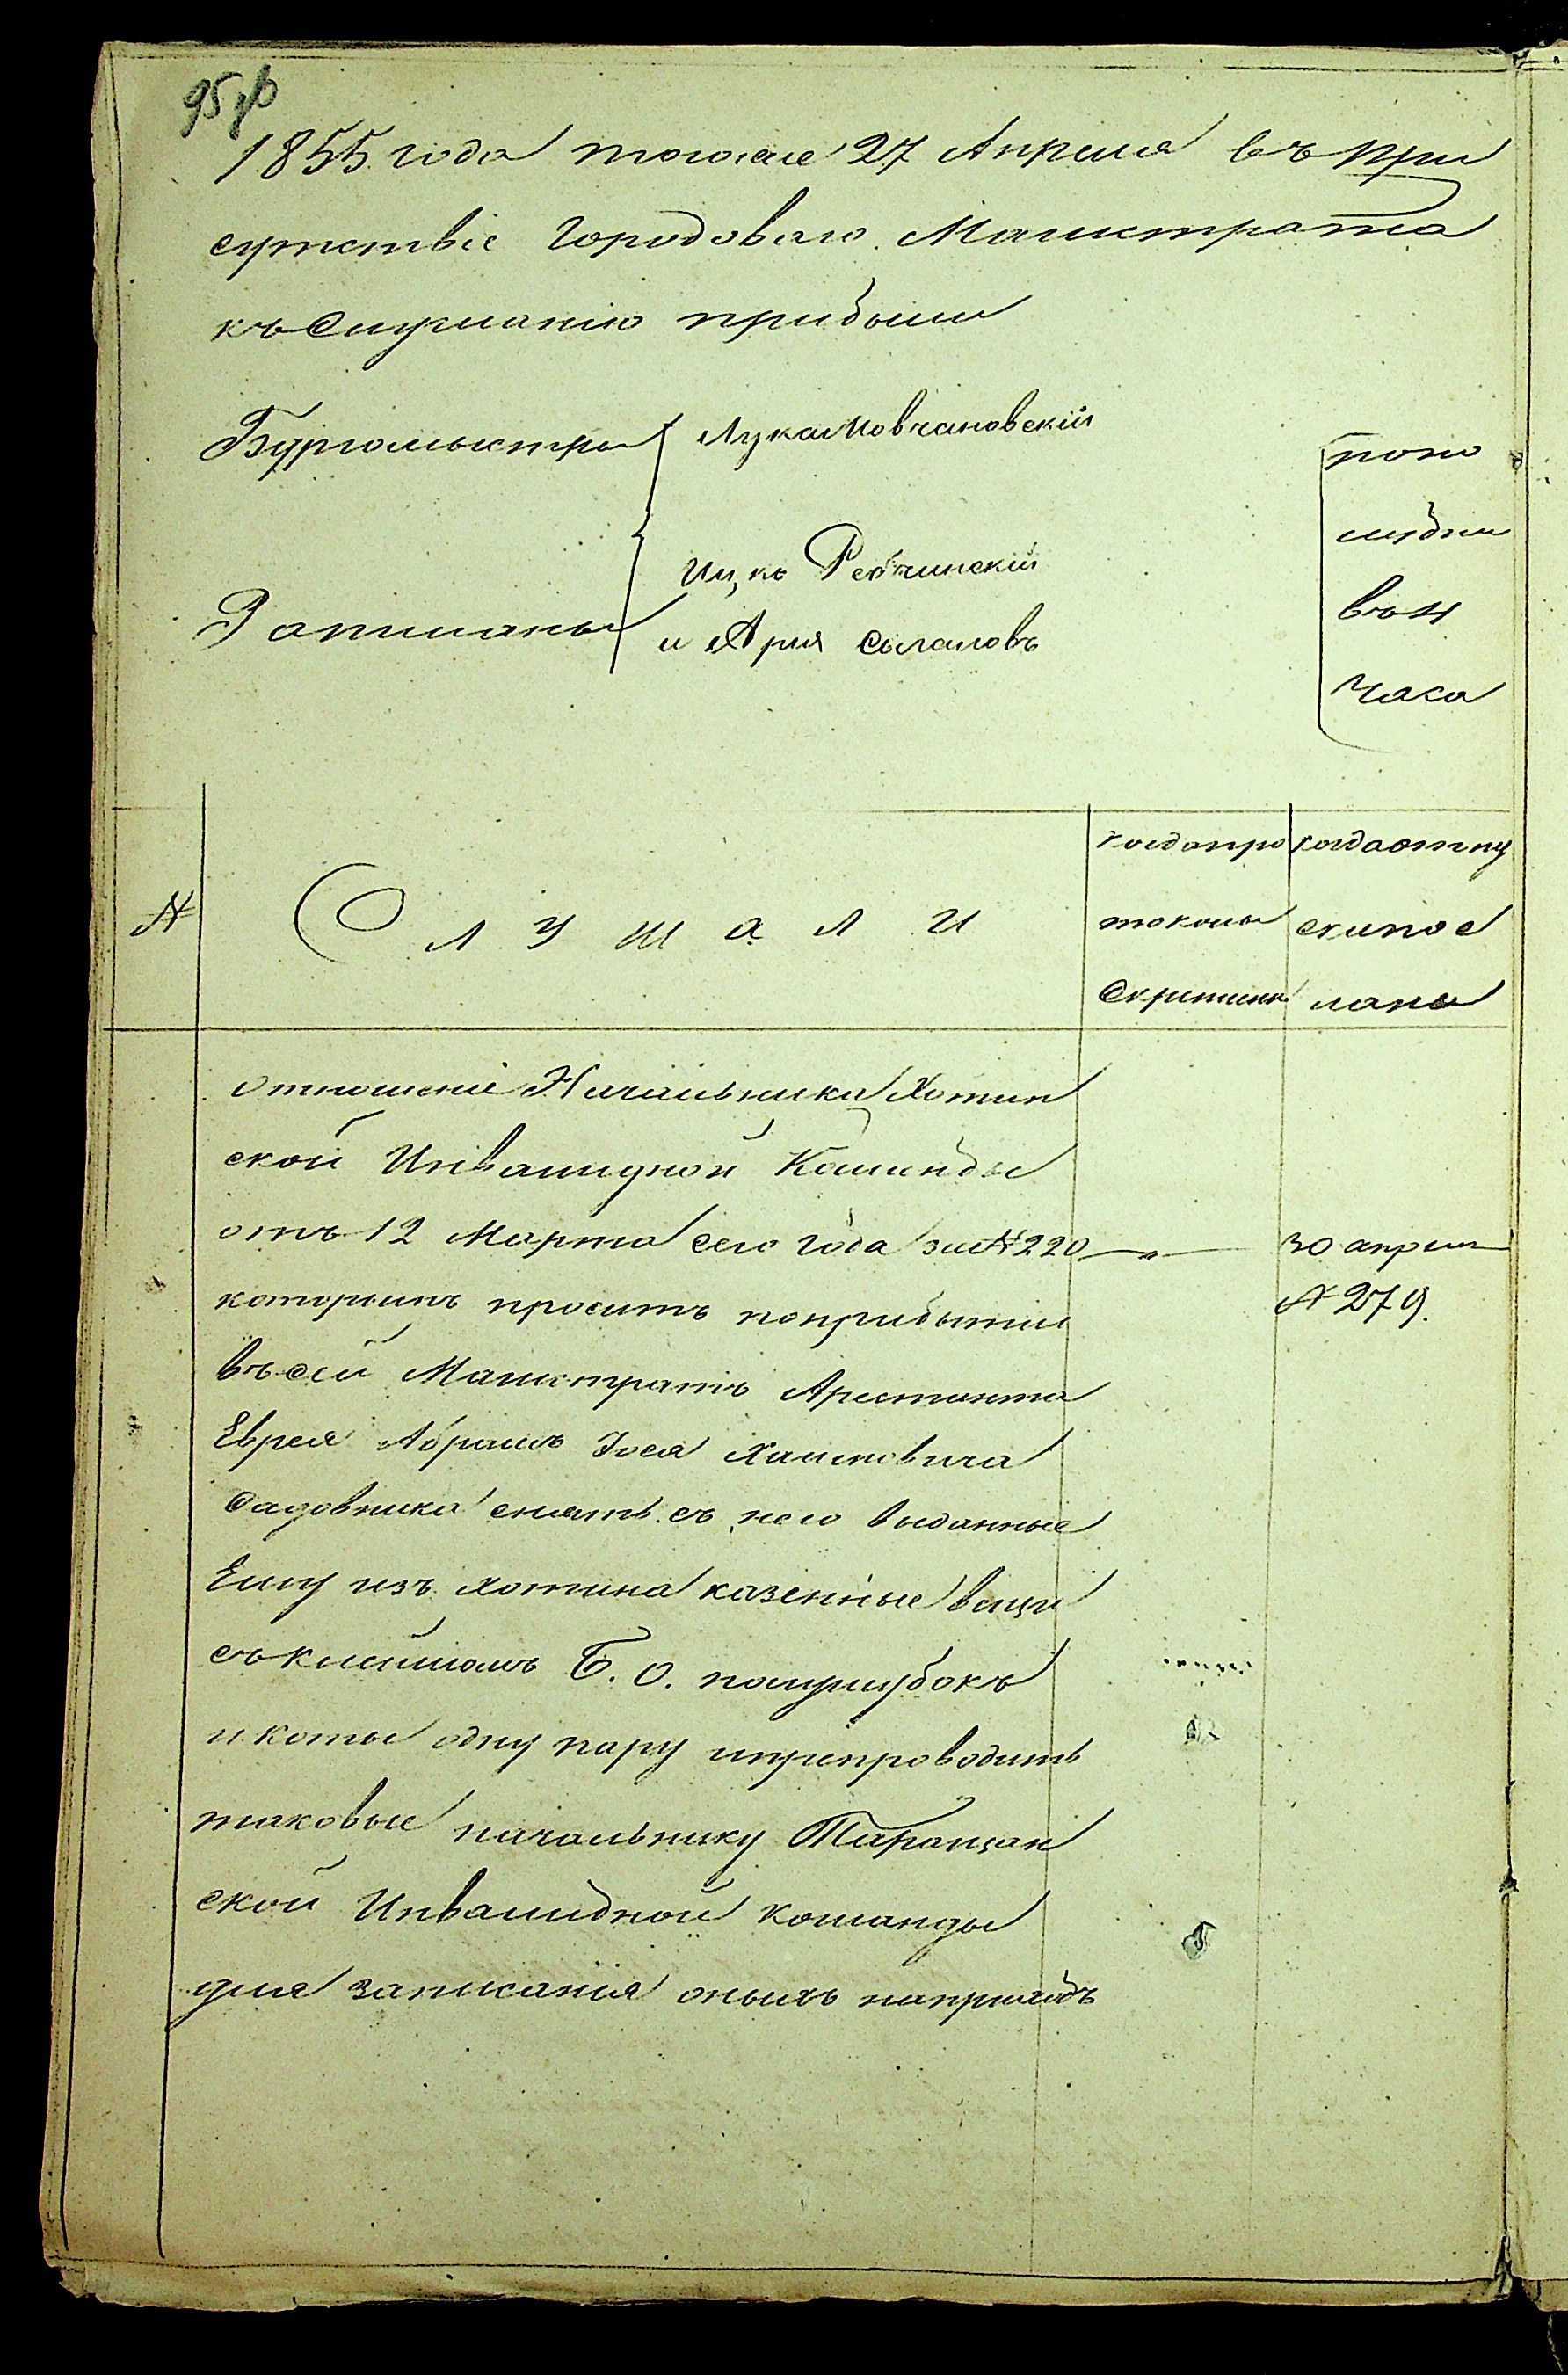 95
1855 года тогоже 27 Апреля въ при
сутствіе Городоваго Магистрата
къ Слушанію прибыли
Бургомыстръ Лука Мовчановскій
Ицко
Ратманы и Арія
попо
лудни
въ 4
часа
№
Слушали
когда про
токолы
Скреплены
когда отпу
ски пос
ланы
Отношеніе Начальника Хотин
ской Инвалидной Команды
отъ 12 Марта сего года за № 220
30 апреля
№ 279.
которымъ проситъ по прибытіи
въ сей Магистратъ Арестанта
Еврея Абрама Іося Хаимовича
Садовника снять съ него выданные
Ему изъ Хотина казенные вещи
съ клеймомъ Б. О. полушубокъ
и коты одну пару и препроводить
таковые начальнику Таращан
ской Инвалидной команды
для записанія оныхъ на приходъ